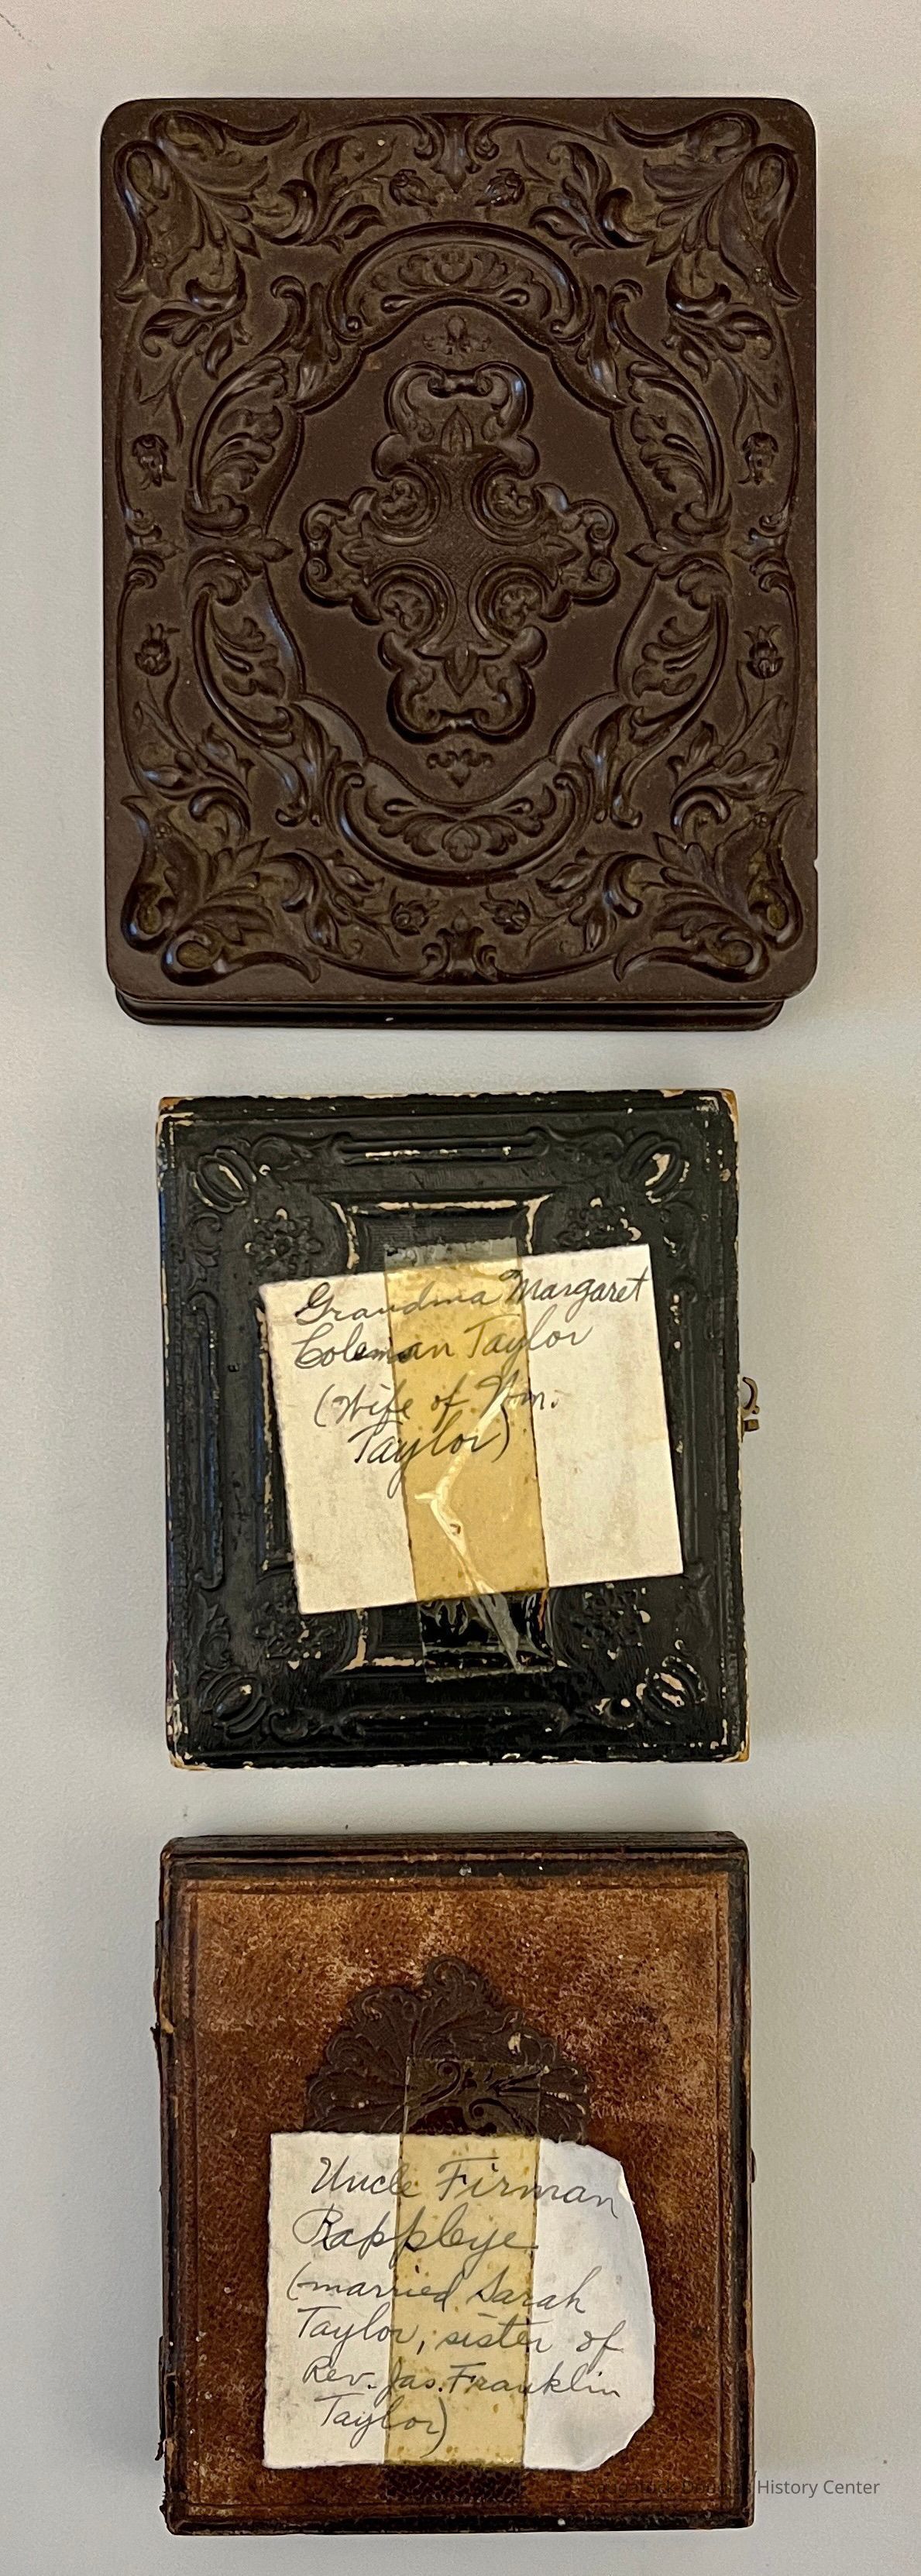 Grandma Margaret
Coleman Taylor
(Wife of Wm.
Taylor)
Uncle Firman
Rappleye
(married Sarah
Taylor, sister of
Rev. Jas. Franklin
Taylor)
Saugatuck-Douglas History Center